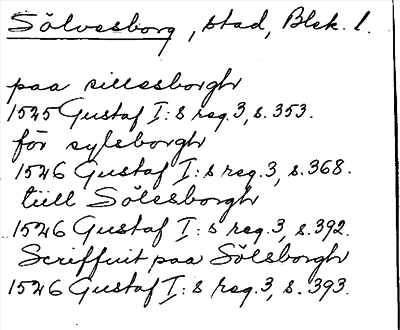 Sölvesborg, stad, Blek. l.
paa sillesborgh
1525 Gustaf I:s reg. 3, s. 353.
för sylsborgh
1526 Gustaf I:s reg. 3, s. 368.
till Sölesborgh
1526 Gustaf I:s reg. 3, s. 392.
Scriffuit paa Sölsborgh
1526 Gustaf I:s reg. 3, s. 393.